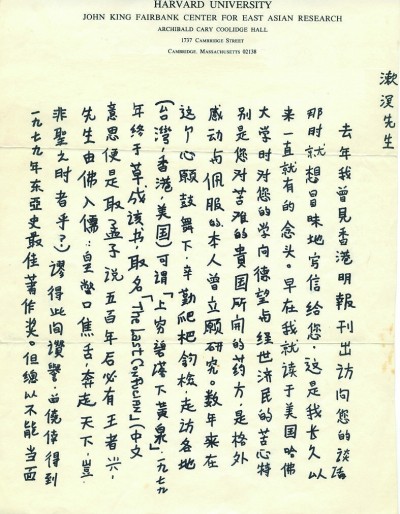 HARVARD UNIVERSITY
JOHN KING FAIRBANK CENTER FOR EAST ASIAN RESEARCH
ARCHIBALD CARY COOLIDGE HALL
1737 CAMBRIDGE STREET
CAMBRIDGE, MASSACHUSETTS 02138
漱溟先生
去年我曾見香港明報刊出访问您的談話
那时就想冒昧地写信给您,这是我长久以
来一直就有的念头。早在我就读于美国哈佛
大学时对您的学问德望与经世济民的苦心特
别是您对苦难的貴国所開的药方,是格外
感动与佩服的,本人曾立願研究。数年来在
这个心願鼓舞下,辛勤爬耙钩检,走访各地
(台灣,香港,美国)可謂「上穷碧落下黄泉」一九七九
年终于草成该书取名「The Last Confucian」(中文
意思便是取孟子说五百年后必有王者兴,
先生由佛入儒,口焦舌,奔走天下,豈
非聖之时者乎?)谬得此间讚譽,並僥倖得到
一九七九年东亞史最佳著作奖。但總以不能当面